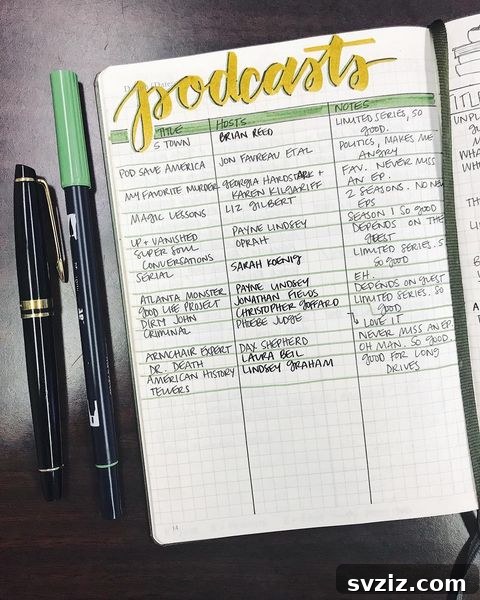 podcasts
TITLE HOSTS NOTES
S TOWN BRIAN REED LIMITED SERIES, SO GOOD.
POD SAVE AMERICA JON FAVREAU ET AL POLITICS, MAKES ME ANGRY
MY FAVORITE MURDER GEORGIA HARDSTARK + KAREN KILGARIFF FAV. NEVER MISS AN EP.
MAGIC LESSONS LIZ GILBERT 2 SEASONS. NO NEW EPS
UP + VANISHED PAYNE LINDSEY SEASON 1 SO GOOD
SUPER SOUL CONVERSATIONS OPRAH DEPENDS ON THE GUEST
SERIAL SARAH KOENIG LIMITED SERIES. SO GOOD
ATLANTA MONSTER PAYNE LINDSEY EH.
GOOD LIFE PROJECT JONATHAN FIELDS DEPENDS ON GUEST
DIRTY JOHN CHRISTOPHER GOFFARD LIMITED SERIES. SO GOOD
CRIMINAL PHOEBE JUDGE LOVE IT
ARMCHAIR EXPERT DAX SHEPHERD NEVER MISS AN EP.
DR. DEATH LAURA BEIL OH MAN. SO GOOD.
AMERICAN HISTORY TELLERS LINDSEY GRAHAM GOOD FOR LONG DRIVES
14
TITLE
svziz.com